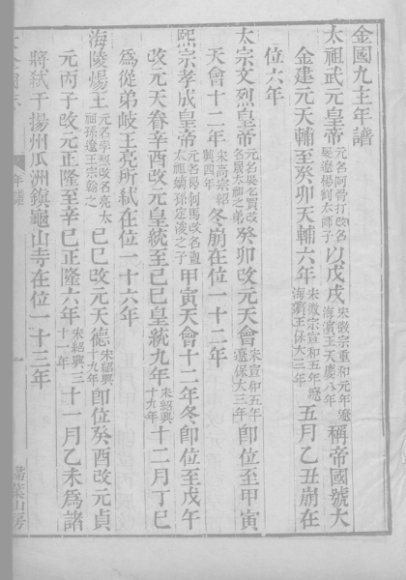 金國九主年譜
太祖武元皇帝元名阿骨打改名旻遼楊割太師子以戊戌宋徽宗重和元年遼海濱王天慶八年稱帝國號大
金建元天輔至癸卯天輔六年宋徽宗宣和五年遼海濱王保大三年五月乙丑崩在
位六年
太宗文烈皇帝元名吳乞買改名晟太祖之弟癸卯改元天會宋宣和五年遼保大三年卽位至甲寅
天會十二年宋高宗紹興四年冬崩在位一十二年
熙宗孝成皇帝元名曷剌馬改名亶太祖嫡孫定浚之子甲寅天會十二年冬卽位至戊午
改元天眷辛酉改元皇統至己巳皇統九年宋紹興十九年十二月丁巳
爲從弟岐王亮所弑在位一十六年
海陵煬王元名孛烈改名亮太祖孫遼王宗翰之子己巳改元天德宋紹興十九年卽位癸酉改元貞
元丙子改元正隆至辛巳正隆六年宋紹興三十一年十一月乙未爲諸
將弑于揚州瓜洲鎮龜山寺在位一十三年
年譜
一
掃葉山房